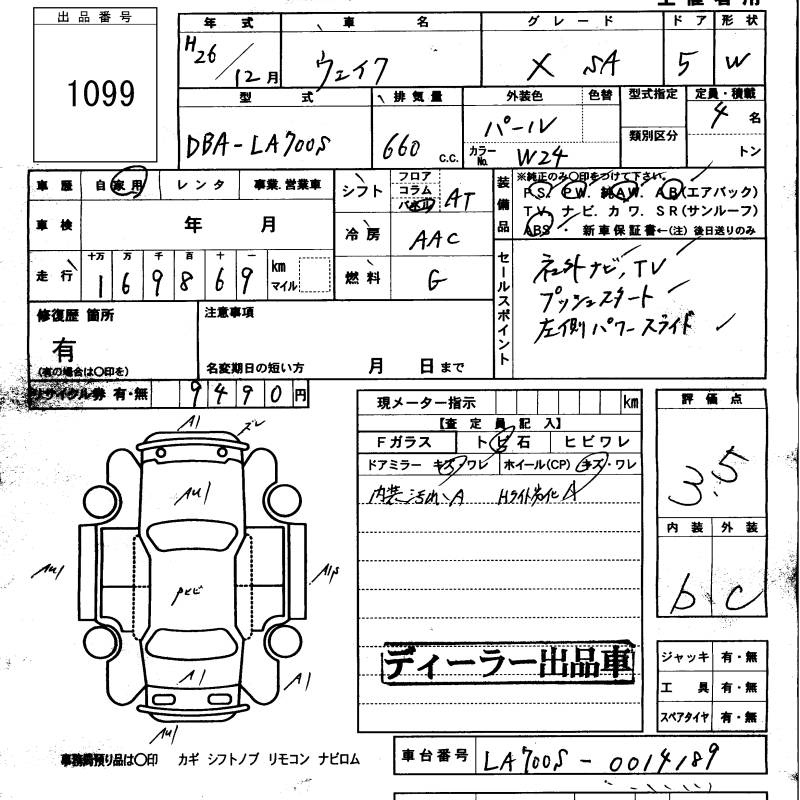 出品番号
1099
年式 車名 グレード ドア 形状
H26/12月 ウェイク X SA 5 W
型式 排気量 外装色 色替 型式指定 定員・積載
DBA-LA700S 660 c.c. パール 類別区分 4名
カラーNo. W24 トン
車歴 自家用 レンタ 事業.営業車
車検 年 月
走行 十万 万 千 百 十 一
169869 km マイル
シフト フロア コラム パネル AT
冷房 AAC
燃料 G
装備品 ※純正のみ〇印をつけて下さい。
PS. PW. 純AW. AB(エアバック)
TV. ナビ. カワ. SR(サンルーフ)
ABS・ 新車保証書←(注)後日送りのみ
セールスポイント
社外ナビ,TV
プッシュスタート
左側パワースライド
修復歴 箇所
有
(有の場合は〇印を)
注意事項
名変期日の短い方 月 日まで
リサイクル券 有・無 9490円
現メーター指示 km
【査定員記入】
Fガラス トビ石 ヒビワレ
ドアミラー キズ・ワレ ホイール(CP) キズ・ワレ
内装汚れA Hライト劣化A
ディーラー出品車
評価点
3.5
内装 外装
b C
ジャッキ 有・無
工具 有・無
スペアタイヤ 有・無
A1
AU1
AU1
A1
A1
AU1
カギ シフトノブ リモコン ナビロム
車台番号 LA700S-0014189